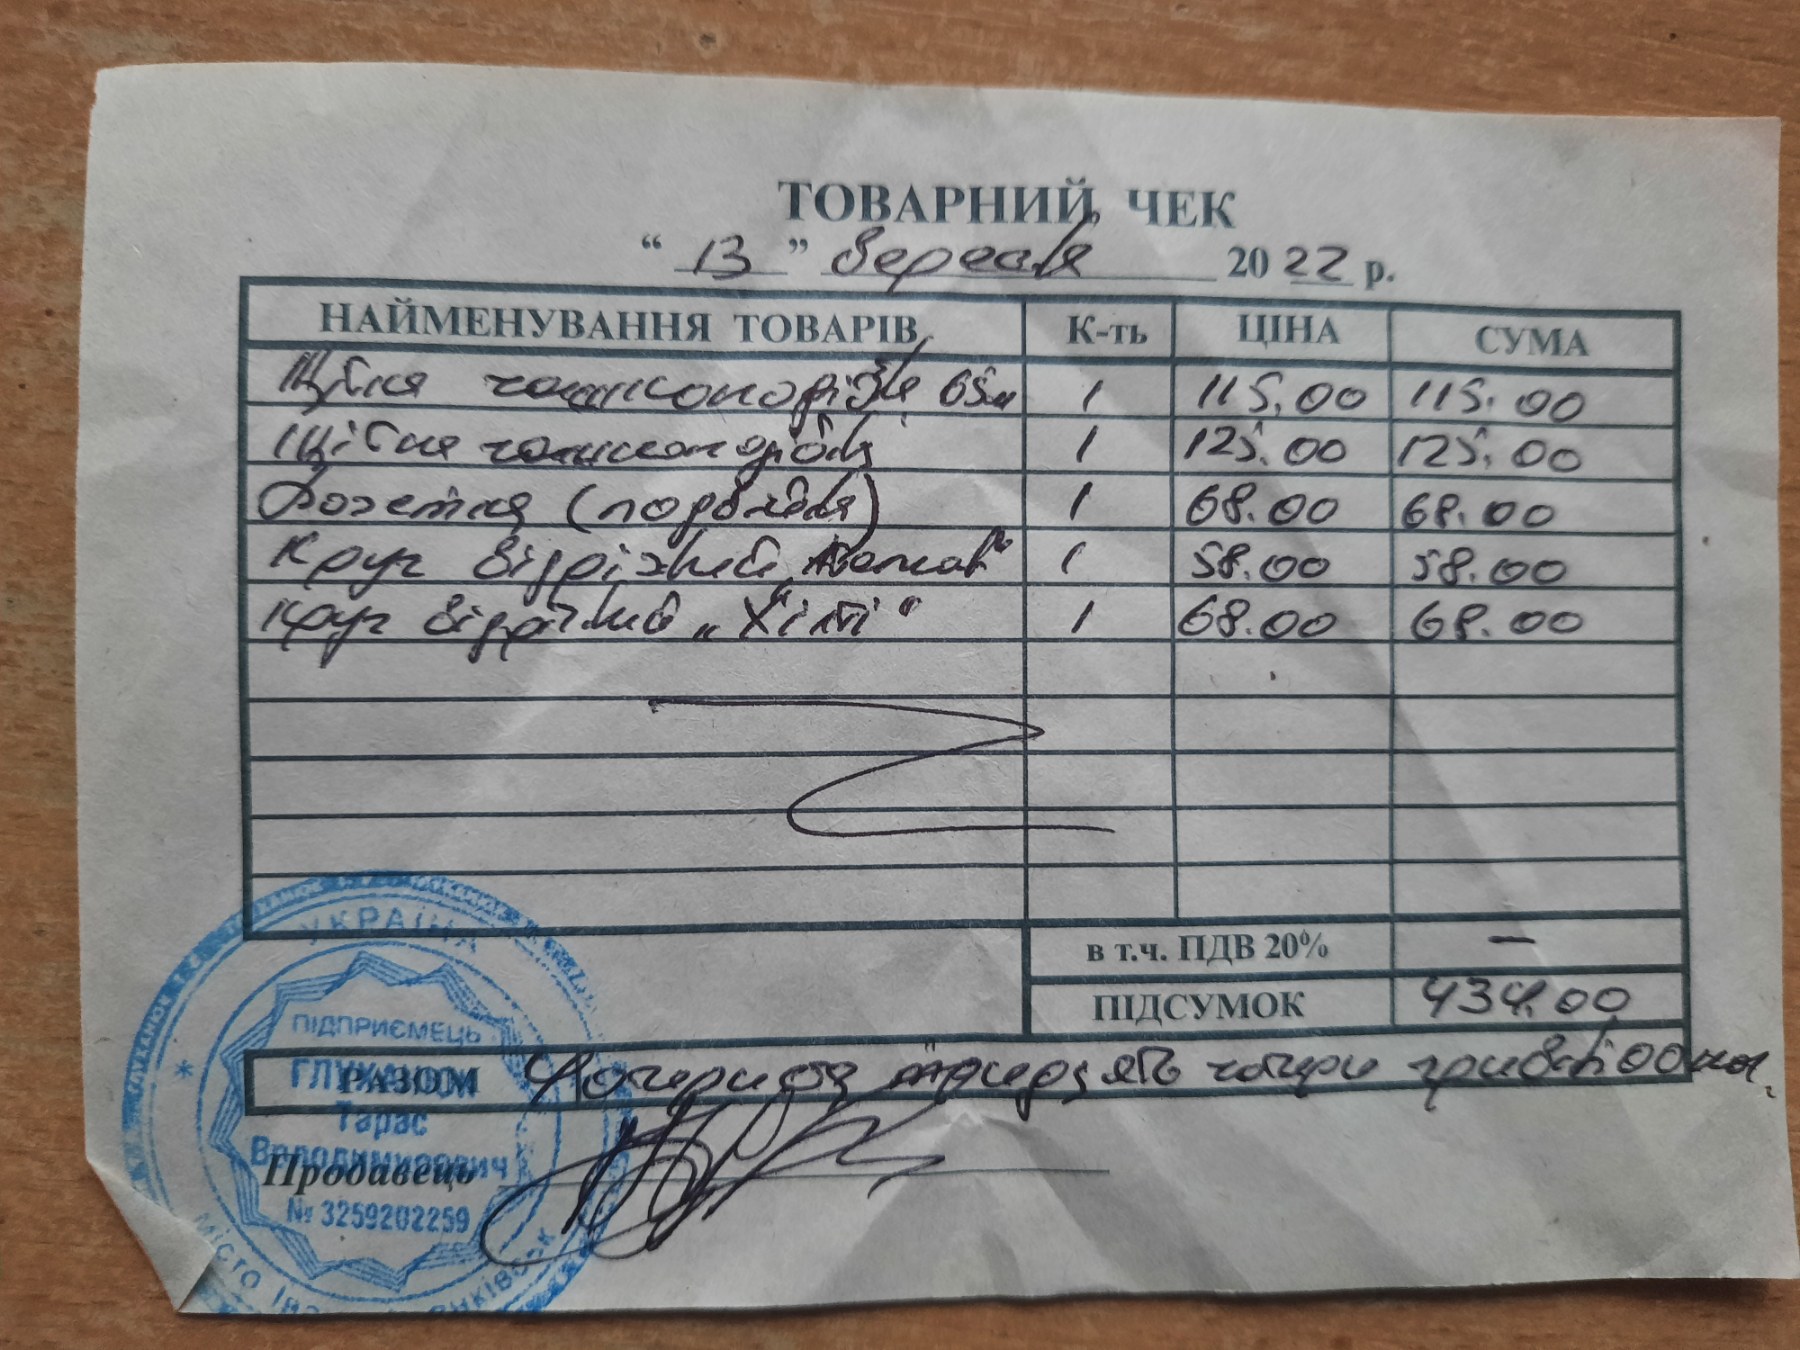 ТОВАРНИЙ ЧЕК
“ 13 ” вересня 2022 р.
НАЙМЕНУВАННЯ ТОВАРІВ К-ть ЦІНА СУМА
Щітка 65м 1 115.00 115.00
Щітка 1 125.00 125.00
Розетка (подвійна) 1 68.00 68.00
Круг відрізний 1 58.00 58.00
Круг відрізний „Хілті“ 1 68.00 68.00
в т.ч. ПДВ 20% —
ПІДСУМОК 434.00
РАЗОМ Чотириста тридцять чотири гривні 00 коп.
Продавець
УКРАЇНА
ПІДПРИЄМЕЦЬ
Тарас
Володимирович
№ 3259202259